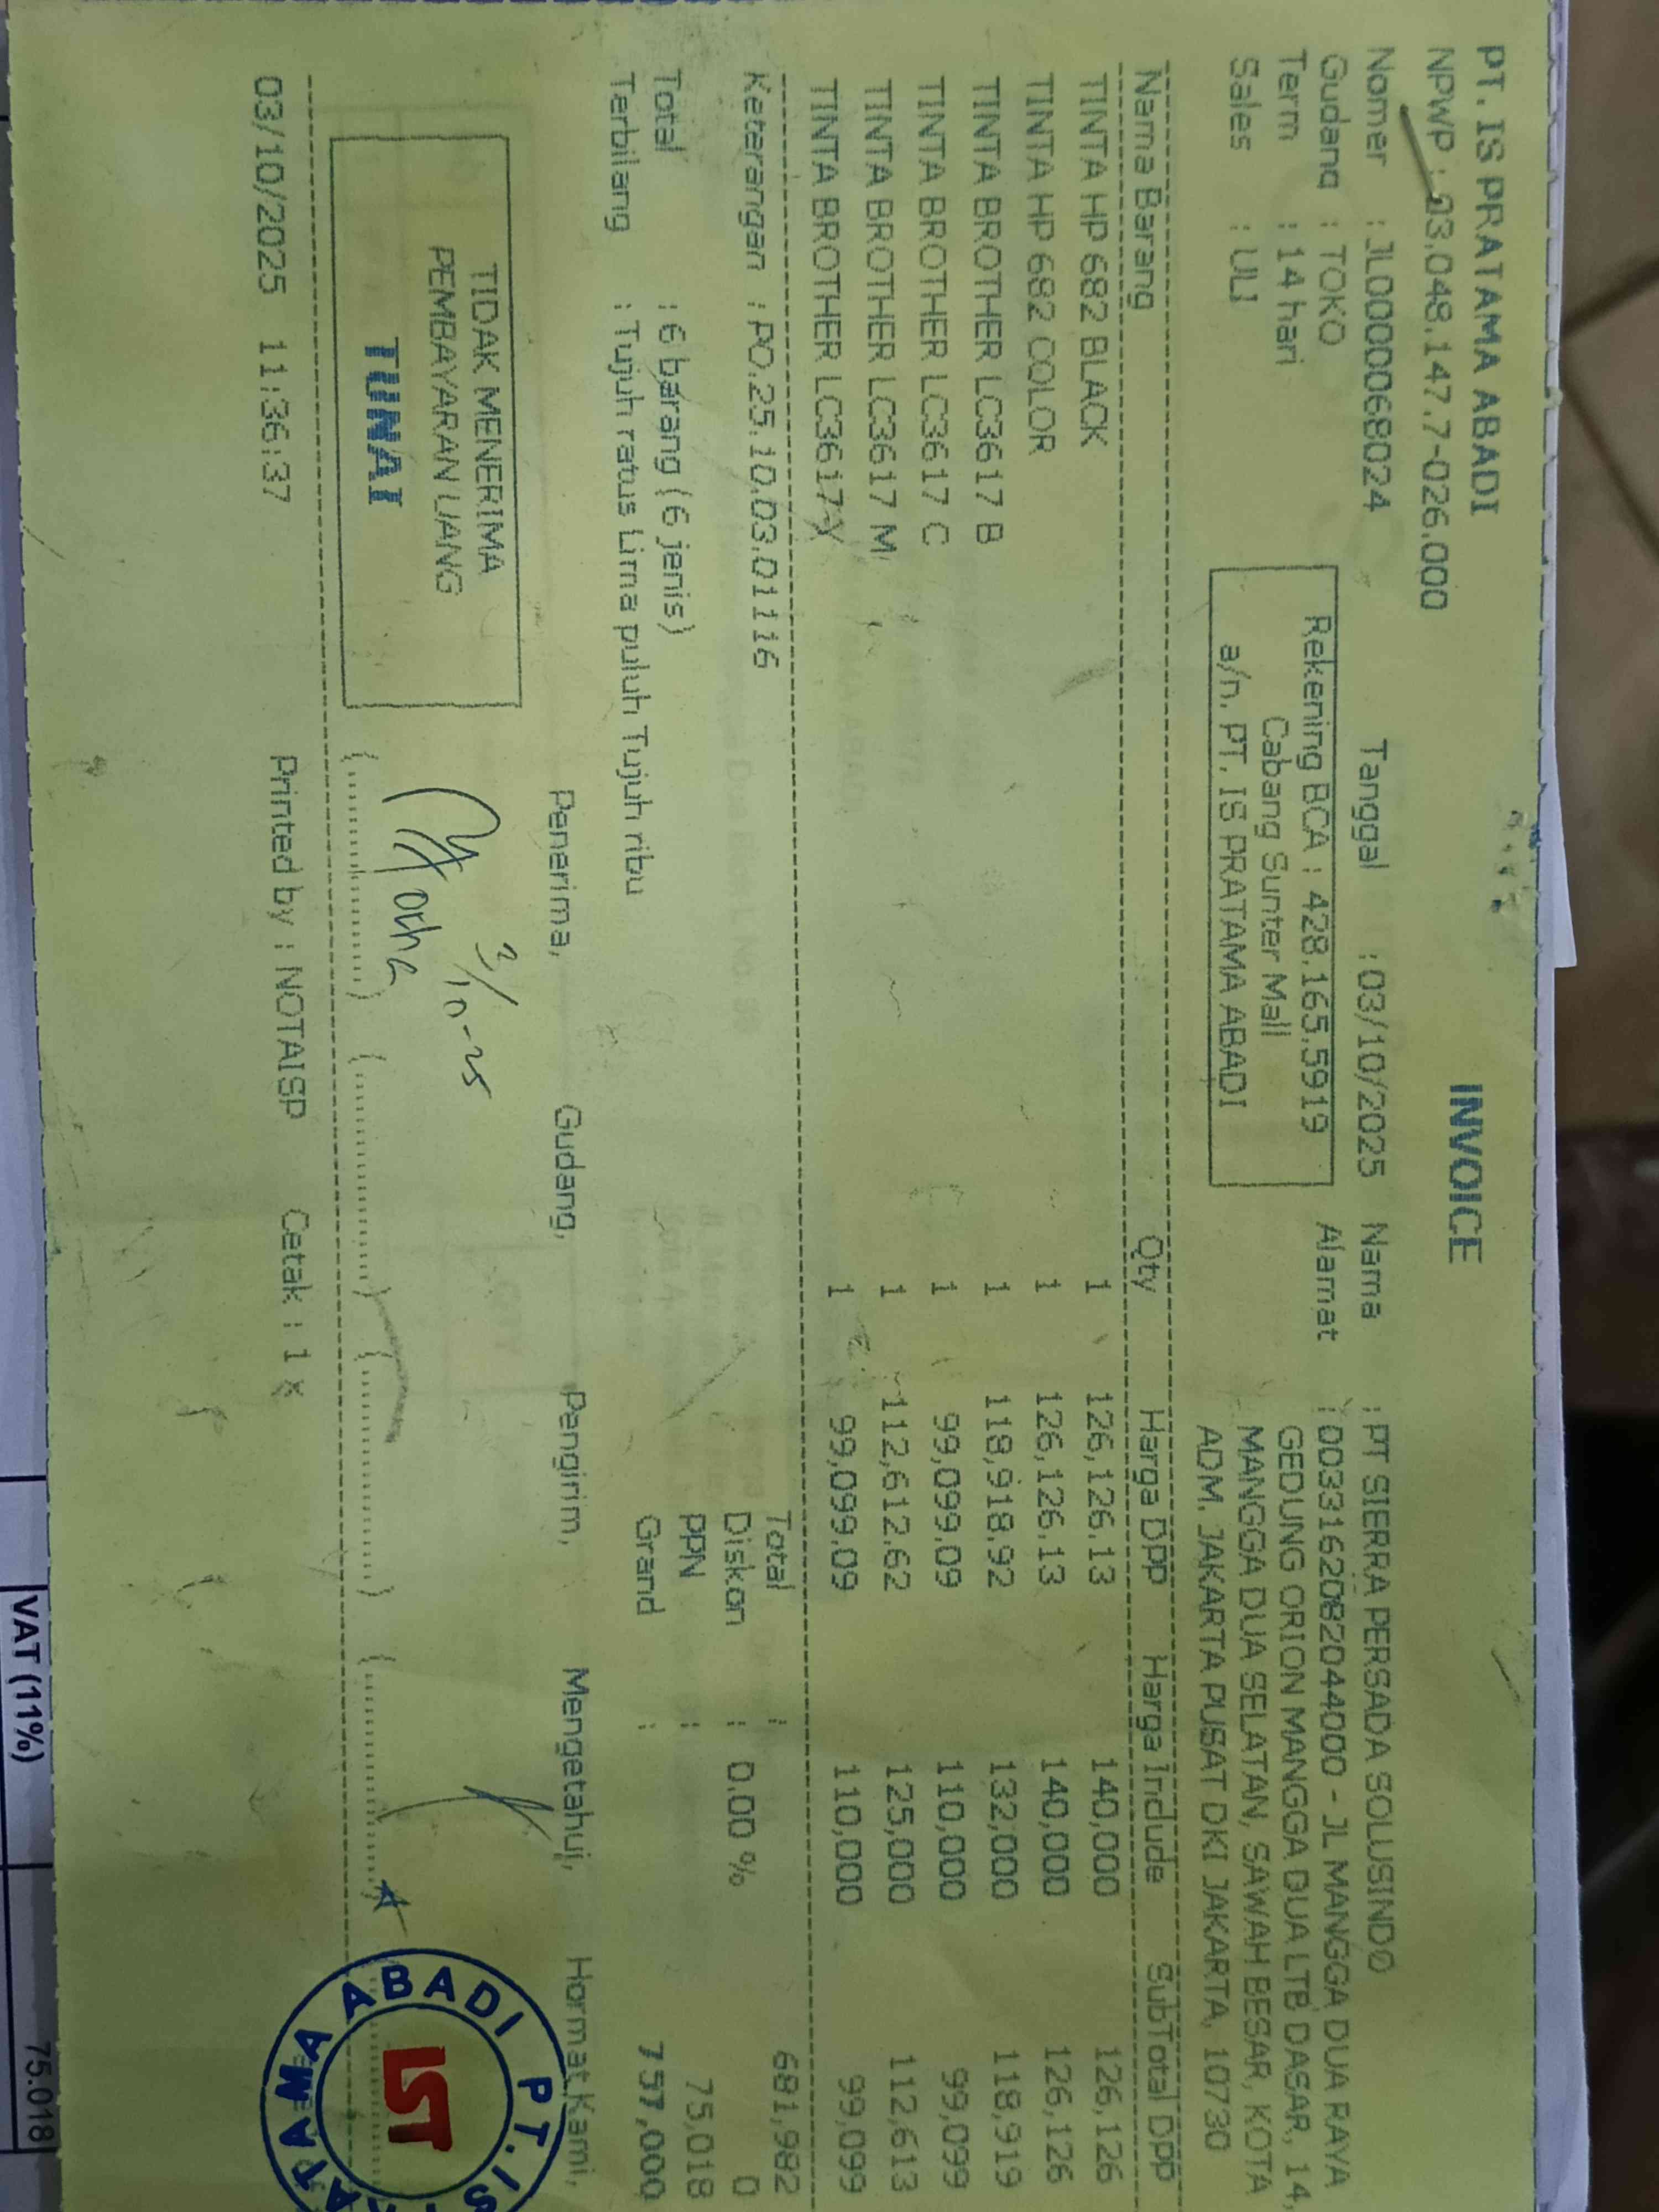 PT. IS PRATAMA ABADI
INVOICE
NPWP : 03.048.147.7-026.000
Nomer : JL0000068024
Tanggal : 03/10/2025
Nama : PT SIERRA PERSADA SOLUSINDO
Gudang : TOKO
Alamat : 0033162082044000 - JL MANGGA DUA RAYA
GEDUNG ORION MANGGA DUA LTB DASAR, 14,
MANGGA DUA SELATAN, SAWAH BESAR, KOTA
ADM. JAKARTA PUSAT DKI JAKARTA, 10730
Term : 14 hari
Sales : ULI
Rekening BCA : 428.165.5919
Cabang Sunter Mall
a/n. PT. IS PRATAMA ABADI
Nama Barang Qty Harga DPP Harga Include SubTotal DPP
TINTA HP 682 BLACK 1 126,126.13 140,000 126,126
TINTA HP 682 COLOR 1 126,126.13 140,000 126,126
TINTA BROTHER LC3617 B 1 118,918.92 132,000 118,919
TINTA BROTHER LC3617 C 1 99,099.09 110,000 99,099
TINTA BROTHER LC3617 M 1 112,612.62 125,000 112,613
TINTA BROTHER LC3617 Y 1 99,099.09 110,000 99,099
Keterangan : PO.25.10.03.01116
Total : 681,982
Diskon : 0.00 % 0
PPN : 75,018
Grand : 757,000
Total : 6 barang (6 jenis)
Terbilang : Tujuh ratus Lima puluh Tujuh ribu
Penerima, Gudang, Pengirim, Mengetahui, Hormat Kami,
TIDAK MENERIMA
PEMBAYARAN UANG
TUNAI
3/10-25
PT. IS PRATAMA ABADI
IST
03/10/2025 11:36:37 Printed by : NOTAISP Cetak : 1 x
VAT (11%) 75.018